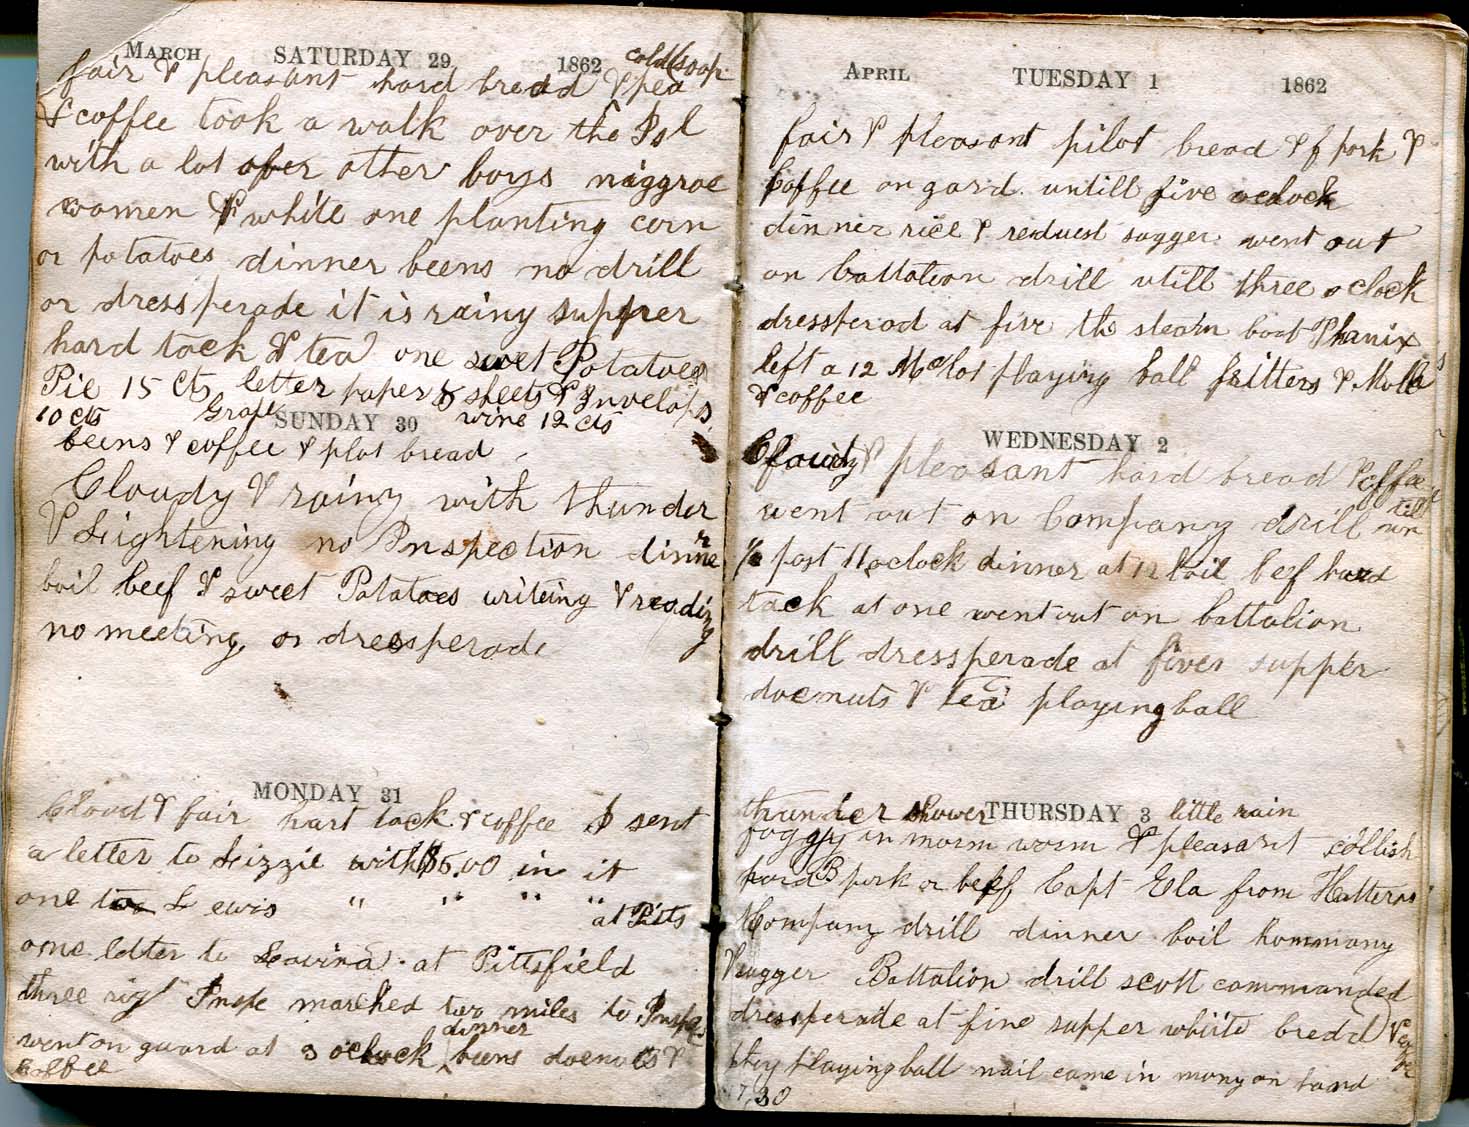 MARCH SATURDAY 29 1862
cold soop
fair & pleasant hard bread & pea
& coffee took a walk over the Isl
with a lot ofer other boys niggroe
women & white one planting corn
or potatoes dinner beens no drill
or dressperade it is rainy supper
hard tack & tea one swet Potatoes
Pie 15 cts letter paper sheets & Invelops
10 cts Grape wine 12 cts
SUNDAY 30
beens & coffee & plot bread
Cloudy & rainy with thunder
& Leightening no Inspection dinner
boil beef & sweet Potatoes writeing & reading
no meeting or dressperade
MONDAY 31
Cloud & fair hart tack & coffee I sent
a letter to Lizzie with $5.00 in it
one to Lewis " " " " at Pits
one letter to Lavina at Pittsfield
three rigt Inspe marched two miles to Inspe
went on guard at 3 oclock dinner beens doenuts &
coffee
APRIL TUESDAY 1 1862
fair & pleasant pilot bread & f pork &
Coffee on gard untill five oclock
dinner rice & reduest sugger went out
on battalion drill utill three oclock
dressperad at five the steam boat Phanix
left a 12 M lot playing ball fritters & Molla
& coffee
WEDNESDAY 2
Cloudy & pleasant hard bread & coffee
went out on Company drill till
1/2 past 11 oclock dinner at 12 boil beef hard
tack at one went out on battalion
drill dressperade at five supper
doenuts & tea playing ball
THURSDAY 3
thunder shower little rain
foggy in morn worm & pleasant collish
hard B pork or beef Capt Ela from Hatteras
Company drill dinner boil hommany
& sugger Battalion drill scott commanded
dressperade at five supper white bredd &
play playing ball mail came in mony on hand
17,30